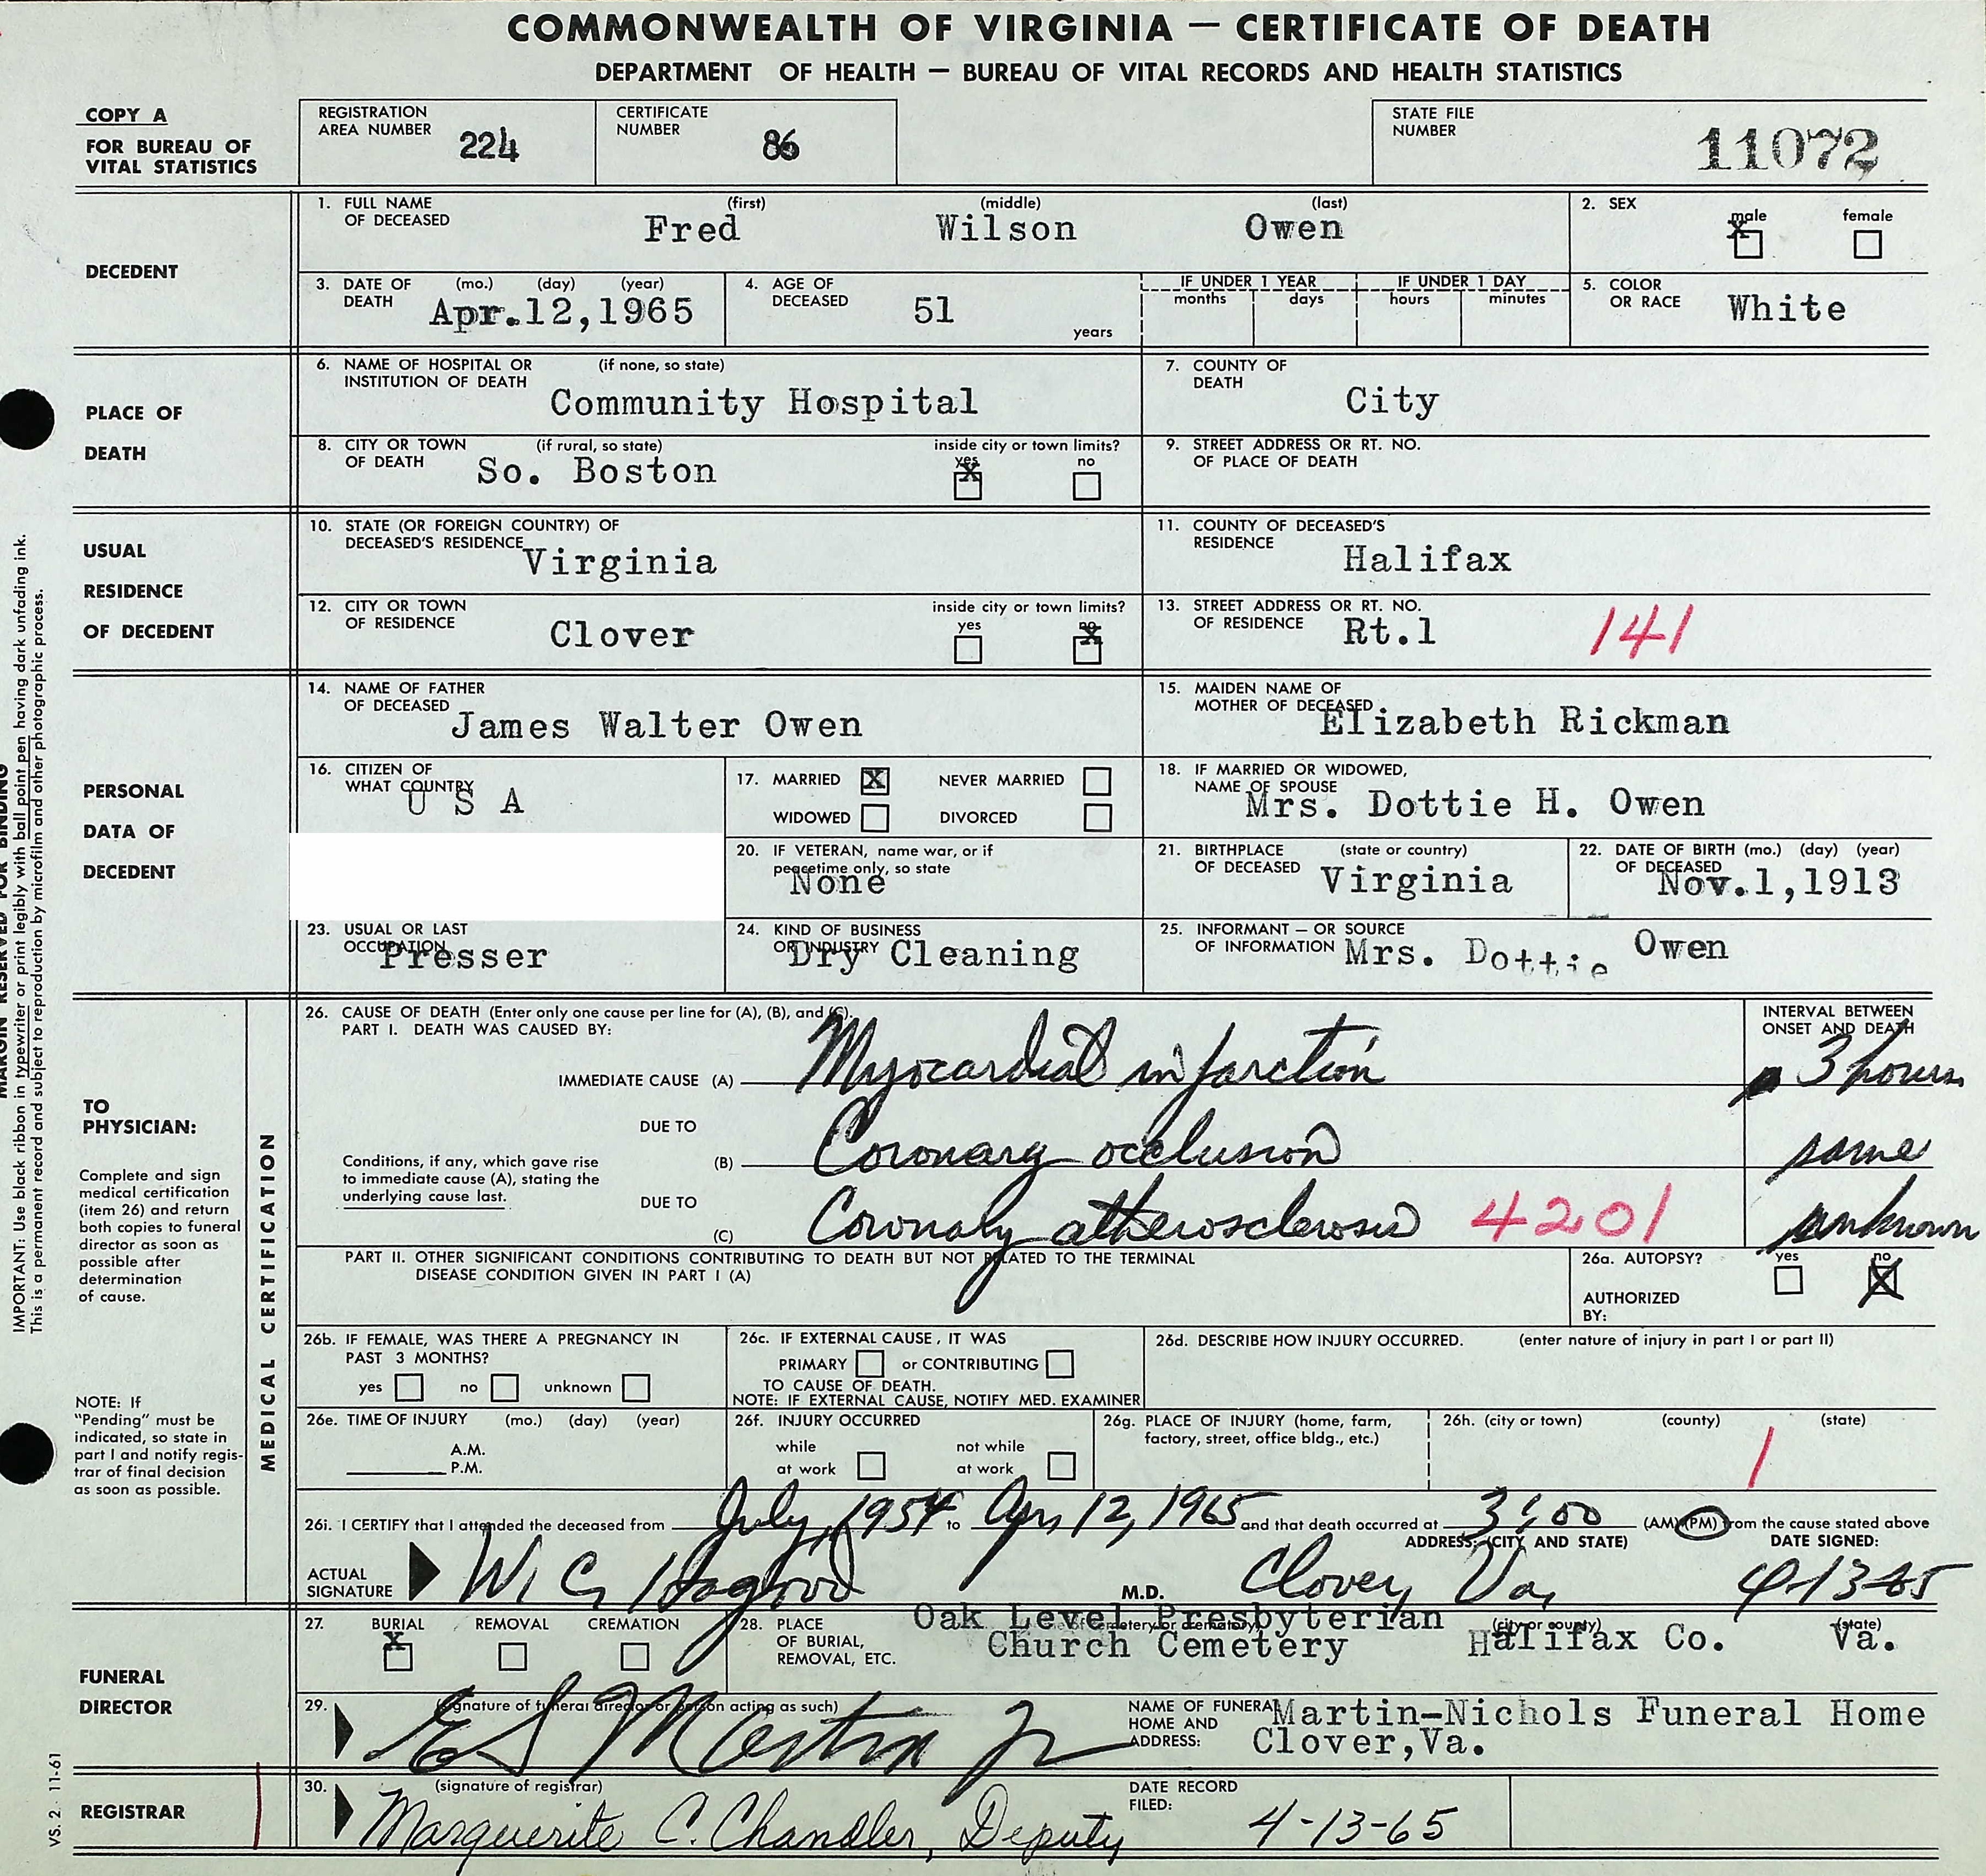 COMMONWEALTH OF VIRGINIA — CERTIFICATE OF DEATH
DEPARTMENT OF HEALTH — BUREAU OF VITAL RECORDS AND HEALTH STATISTICS
COPY A
FOR BUREAU OF
VITAL STATISTICS
REGISTRATION
AREA NUMBER 224
CERTIFICATE
NUMBER 86
STATE FILE
NUMBER 11072
DECEDENT
1. FULL NAME (first) (middle) (last)
OF DECEASED Fred Wilson Owen
2. SEX male X female
3. DATE OF (mo.) (day) (year)
DEATH Apr.12,1965
4. AGE OF
DECEASED 51 years
IF UNDER 1 YEAR IF UNDER 1 DAY
months days hours minutes
5. COLOR
OR RACE White
PLACE OF
DEATH
6. NAME OF HOSPITAL OR (if none, so state)
INSTITUTION OF DEATH Community Hospital
7. COUNTY OF
DEATH City
8. CITY OR TOWN (if rural, so state) inside city or town limits?
OF DEATH So. Boston yes X no
9. STREET ADDRESS OR RT. NO.
OF PLACE OF DEATH
USUAL
RESIDENCE
OF DECEDENT
10. STATE (OR FOREIGN COUNTRY) OF
DECEASED'S RESIDENCE Virginia
11. COUNTY OF DECEASED'S
RESIDENCE Halifax
12. CITY OR TOWN inside city or town limits?
OF RESIDENCE Clover yes no X
13. STREET ADDRESS OR RT. NO.
OF RESIDENCE Rt.1 141
PERSONAL
DATA OF
DECEDENT
14. NAME OF FATHER
OF DECEASED James Walter Owen
15. MAIDEN NAME OF
MOTHER OF DECEASED Elizabeth Rickman
16. CITIZEN OF
WHAT COUNTRY U S A
17. MARRIED X NEVER MARRIED
WIDOWED DIVORCED
18. IF MARRIED OR WIDOWED,
NAME OF SPOUSE Mrs. Dottie H. Owen
20. IF VETERAN, name war, or if
peacetime only, so state
None
21. BIRTHPLACE (state or country)
OF DECEASED Virginia
22. DATE OF BIRTH (mo.) (day) (year)
OF DECEASED Nov.1,1913
23. USUAL OR LAST
OCCUPATION Presser
24. KIND OF BUSINESS
OR INDUSTRY Dry Cleaning
25. INFORMANT — OR SOURCE
OF INFORMATION Mrs. Dottie Owen
TO
PHYSICIAN:
Complete and sign
medical certification
(item 26) and return
both copies to funeral
director as soon as
possible after
determination
of cause.
NOTE: If
"Pending" must be
indicated, so state in
part I and notify regis-
trar of final decision
as soon as possible.
MEDICAL CERTIFICATION
26. CAUSE OF DEATH (Enter only one cause per line for (A), (B), and (C).
PART I. DEATH WAS CAUSED BY:
INTERVAL BETWEEN
ONSET AND DEATH
IMMEDIATE CAUSE (A) Myocardial infarction 3 hours
DUE TO
Conditions, if any, which gave rise
to immediate cause (A), stating the
underlying cause last.
(B) Coronary occlusion same
DUE TO
(C) Coronary atherosclerosis 4201 unknown
PART II. OTHER SIGNIFICANT CONDITIONS CONTRIBUTING TO DEATH BUT NOT RELATED TO THE TERMINAL
DISEASE CONDITION GIVEN IN PART I (A)
26a. AUTOPSY? yes no X
AUTHORIZED
BY:
26b. IF FEMALE, WAS THERE A PREGNANCY IN
PAST 3 MONTHS?
yes no unknown
26c. IF EXTERNAL CAUSE, IT WAS
PRIMARY or CONTRIBUTING
TO CAUSE OF DEATH.
NOTE: IF EXTERNAL CAUSE, NOTIFY MED. EXAMINER
26d. DESCRIBE HOW INJURY OCCURRED. (enter nature of injury in part I or part II)
26e. TIME OF INJURY (mo.) (day) (year)
A.M.
P.M.
26f. INJURY OCCURRED
while not while
at work at work
26g. PLACE OF INJURY (home, farm,
factory, street, office bldg., etc.)
26h. (city or town) (county) (state)
1
26i. I CERTIFY that I attended the deceased from July, 1954 to Apr 12, 1965 and that death occurred at 3:00 (AM) (PM) from the cause stated above
ADDRESS: (CITY AND STATE) DATE SIGNED:
ACTUAL
SIGNATURE W. C. Hagood M.D. Clover, Va, 4-13-65
FUNERAL
DIRECTOR
27. BURIAL X REMOVAL CREMATION
28. PLACE
OF BURIAL,
REMOVAL, ETC.
Oak Level Presbyterian (city or county) (state)
Church Cemetery Halifax Co. Va.
29. (signature of funeral director or person acting as such)
E S Martin Jr
NAME OF FUNERAL
HOME AND
ADDRESS:
Martin-Nichols Funeral Home
Clover,Va.
REGISTRAR
30. (signature of registrar)
Marguerite C. Chandler, Deputy
DATE RECORD
FILED: 4-13-65
MARGIN RESERVED FOR BINDING
IMPORTANT: Use black ribbon in typewriter or print legibly with ball point pen having dark unfading ink.
This is a permanent record and subject to reproduction by microfilm and other photographic process.
VS. 2. 11-61